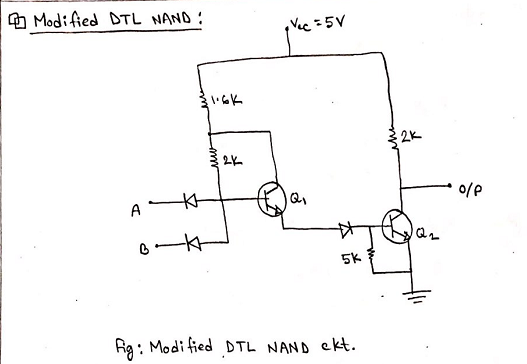 Modified DTL NAND :
Vcc = 5V
1.6K
2K
2K
A
Q1
O/P
B
Q2
5K
fig : Modified DTL NAND ckt.